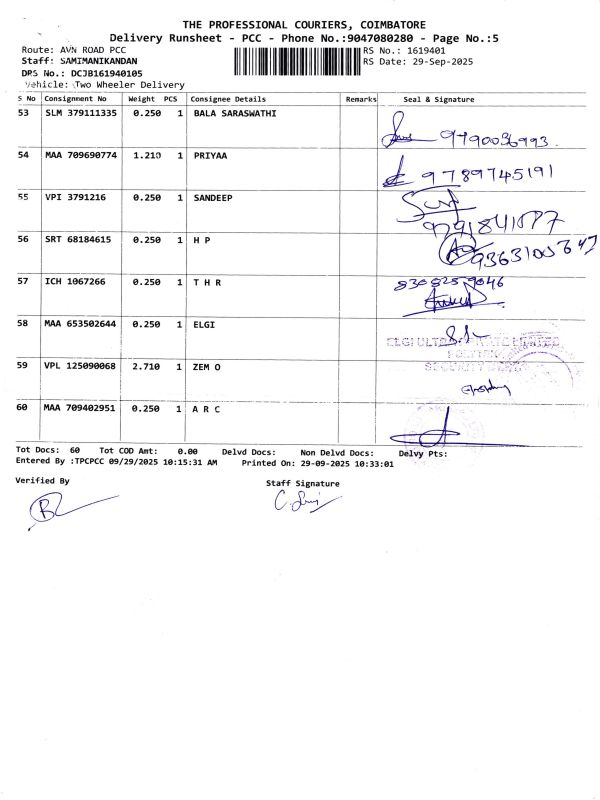 THE PROFESSIONAL COURIERS, COIMBATORE
Delivery Runsheet - PCC - Phone No.:9047080280 - Page No.:5
Route: AVN ROAD PCC RS No.: 1619401
Staff: SAMIMANIKANDAN RS Date: 29-Sep-2025
DRS No.: DCJB161940105
Vehicle: Two Wheeler Delivery
S No Consignment No Weight PCS Consignee Details Remarks Seal & Signature
53 SLM 379111335 0.250 1 BALA SARASWATHI
9790036993
54 MAA 709690774 1.210 1 PRIYAA
9789745191
55 VPI 3791216 0.250 1 SANDEEP
56 SRT 68184615 0.250 1 H P
57 ICH 1067266 0.250 1 T H R
8308259046
58 MAA 653502644 0.250 1 ELGI
ELGI ULTRA PRIVATE LIMITED
59 VPL 125090068 2.710 1 ZEM O
SECURITY
60 MAA 709402951 0.250 1 A R C
Tot Docs: 60 Tot COD Amt: 0.00 Delvd Docs: Non Delvd Docs: Delvy Pts:
Entered By :TPCPCC 09/29/2025 10:15:31 AM Printed On: 29-09-2025 10:33:01
Verified By Staff Signature